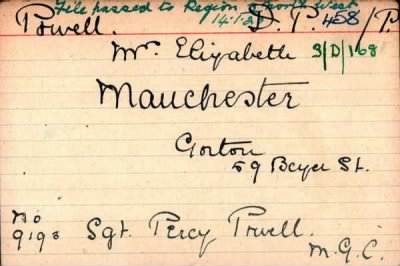 File passed to Region 3 North West
14.1.21 D.P. 458/P.
Powell.
Mrs. Elizabeth 3/D/168
Manchester
Gorton
59 Beyer St.
No
9193 Sgt. Percy Powell.
M.G.C.